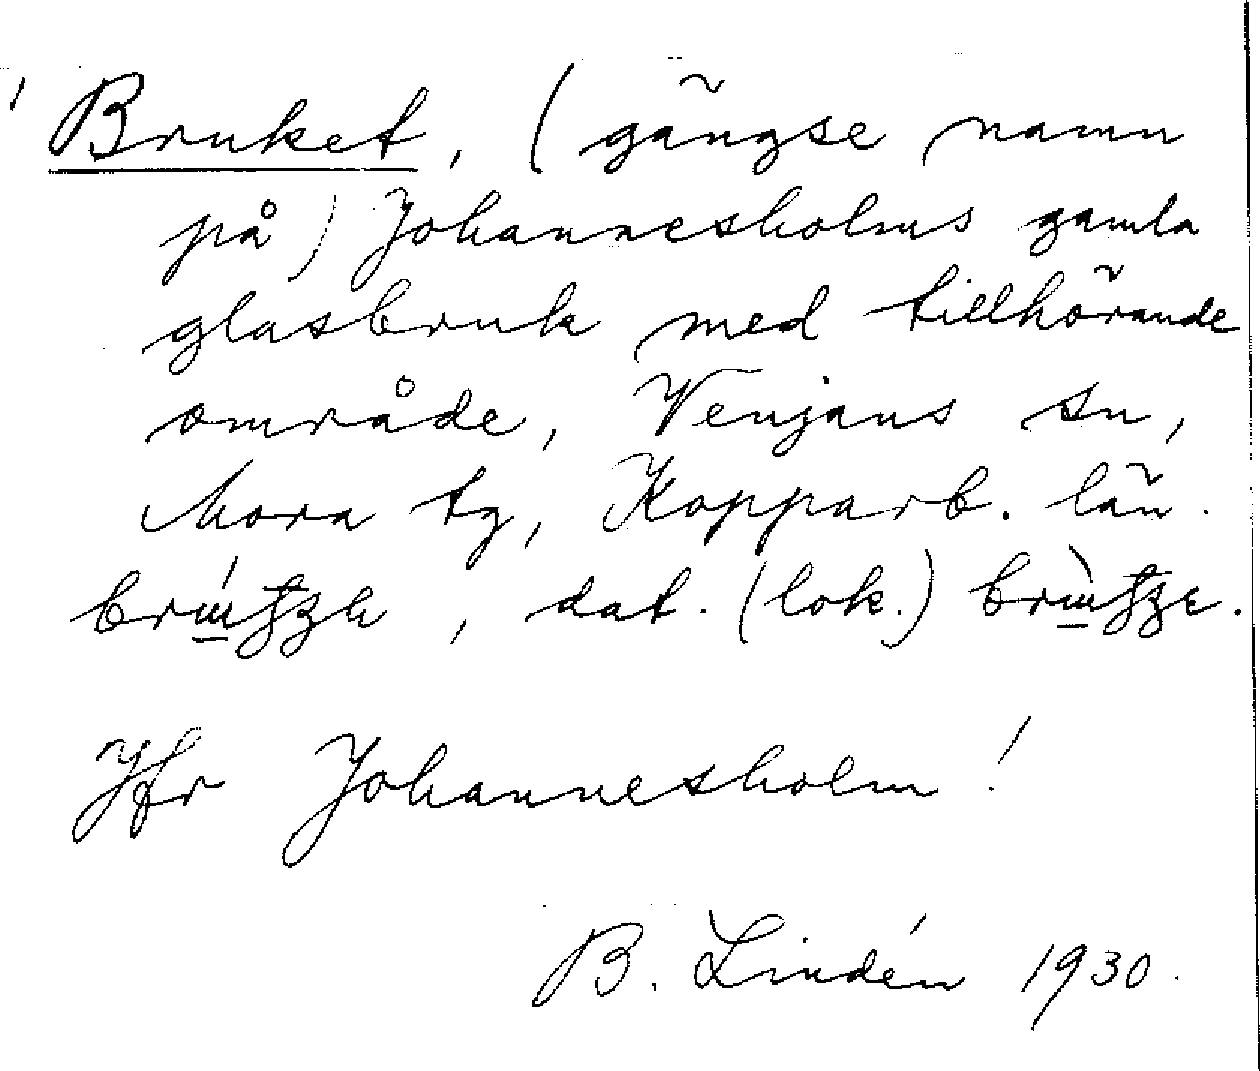 Bruket, (gängse namn
på) Johannesholms gamla
glasbruk med tillhörande
område, Venjans sn,
Mora tg, Kopparb. län.
, dat. (lok.)
Jfr Johannesholm!
B. Lindén 1930.